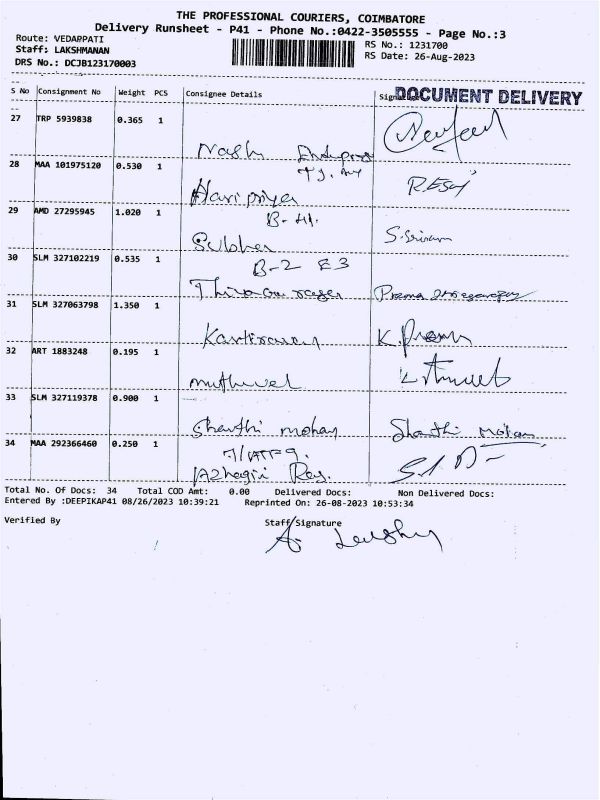 THE PROFESSIONAL COURIERS, COIMBATORE
Delivery Runsheet - P41 - Phone No.:0422-3505555 - Page No.:3
Route: VEDAPPATI
Staff: LAKSHMANAN
RS No.: 1231700
DRS No.: DCJB123170003
RS Date: 26-Aug-2023
S No Consignment No Weight PCS Consignee Details
DOCUMENT DELIVERY
27 TRP 5939838 0.365 1
Nash
28 MAA 101975120 0.530 1
Haripriya
29 AMD 27295945 1.020 1
B-41.
S.Sriram
30 SLM 327102219 0.535 1
B-2 E3
31 SLM 327063798 1.350 1
K.Prem
32 ART 1883248 0.195 1
muthuvel
33 SLM 327119378 0.900 1
Shanthi mohan Shanthi Mohan
34 MAA 292366460 0.250 1
Azhagiri Raj.
Total No. Of Docs: 34 Total COD Amt: 0.00 Delivered Docs: Non Delivered Docs:
Entered By :DEEPIKAP41 08/26/2023 10:39:21 Reprinted On: 26-08-2023 10:53:34
Verified By Staff Signature